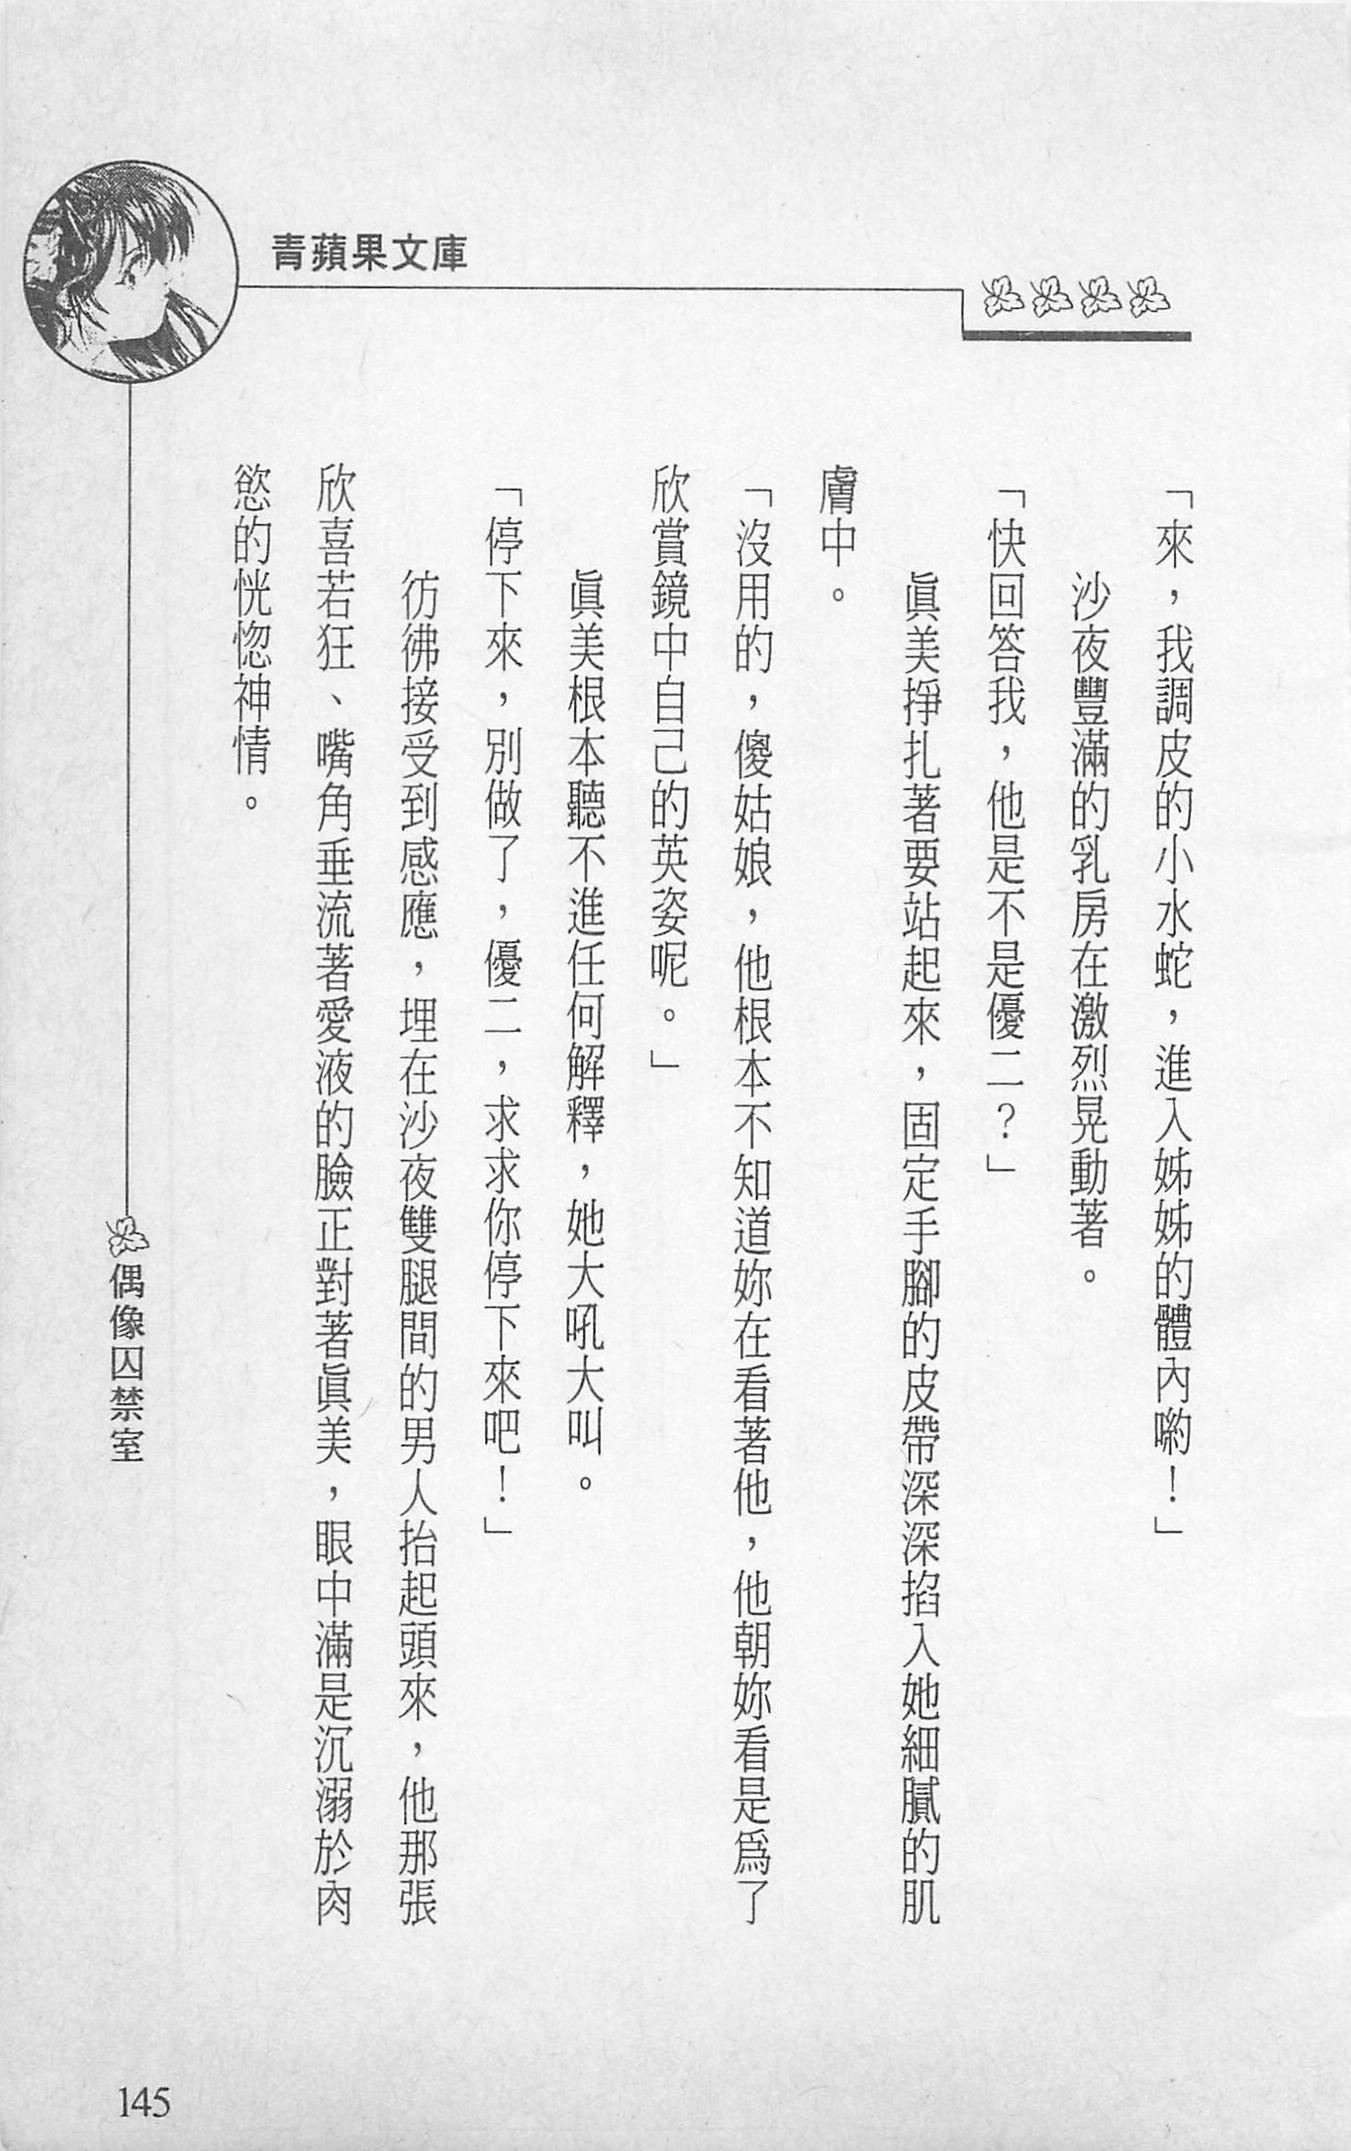 青蘋果文庫
「來，我調皮的小水蛇，進入姊姊的體內喲！」
沙夜豐滿的乳房在激烈晃動著。
「快回答我，他是不是優二？」
眞美掙扎著要站起來，固定手腳的皮帶深深掐入她細膩的肌
膚中。
「沒用的，傻姑娘，他根本不知道妳在看著他，他朝妳看是爲了
欣賞鏡中自己的英姿呢。」
眞美根本聽不進任何解釋，她大吼大叫。
「停下來，別做了，優二，求求你停下來吧！」
彷彿接受到感應，埋在沙夜雙腿間的男人抬起頭來，他那張
欣喜若狂、嘴角垂流著愛液的臉正對著眞美，眼中滿是沉溺於肉
慾的恍惚神情。
偶像囚禁室
145